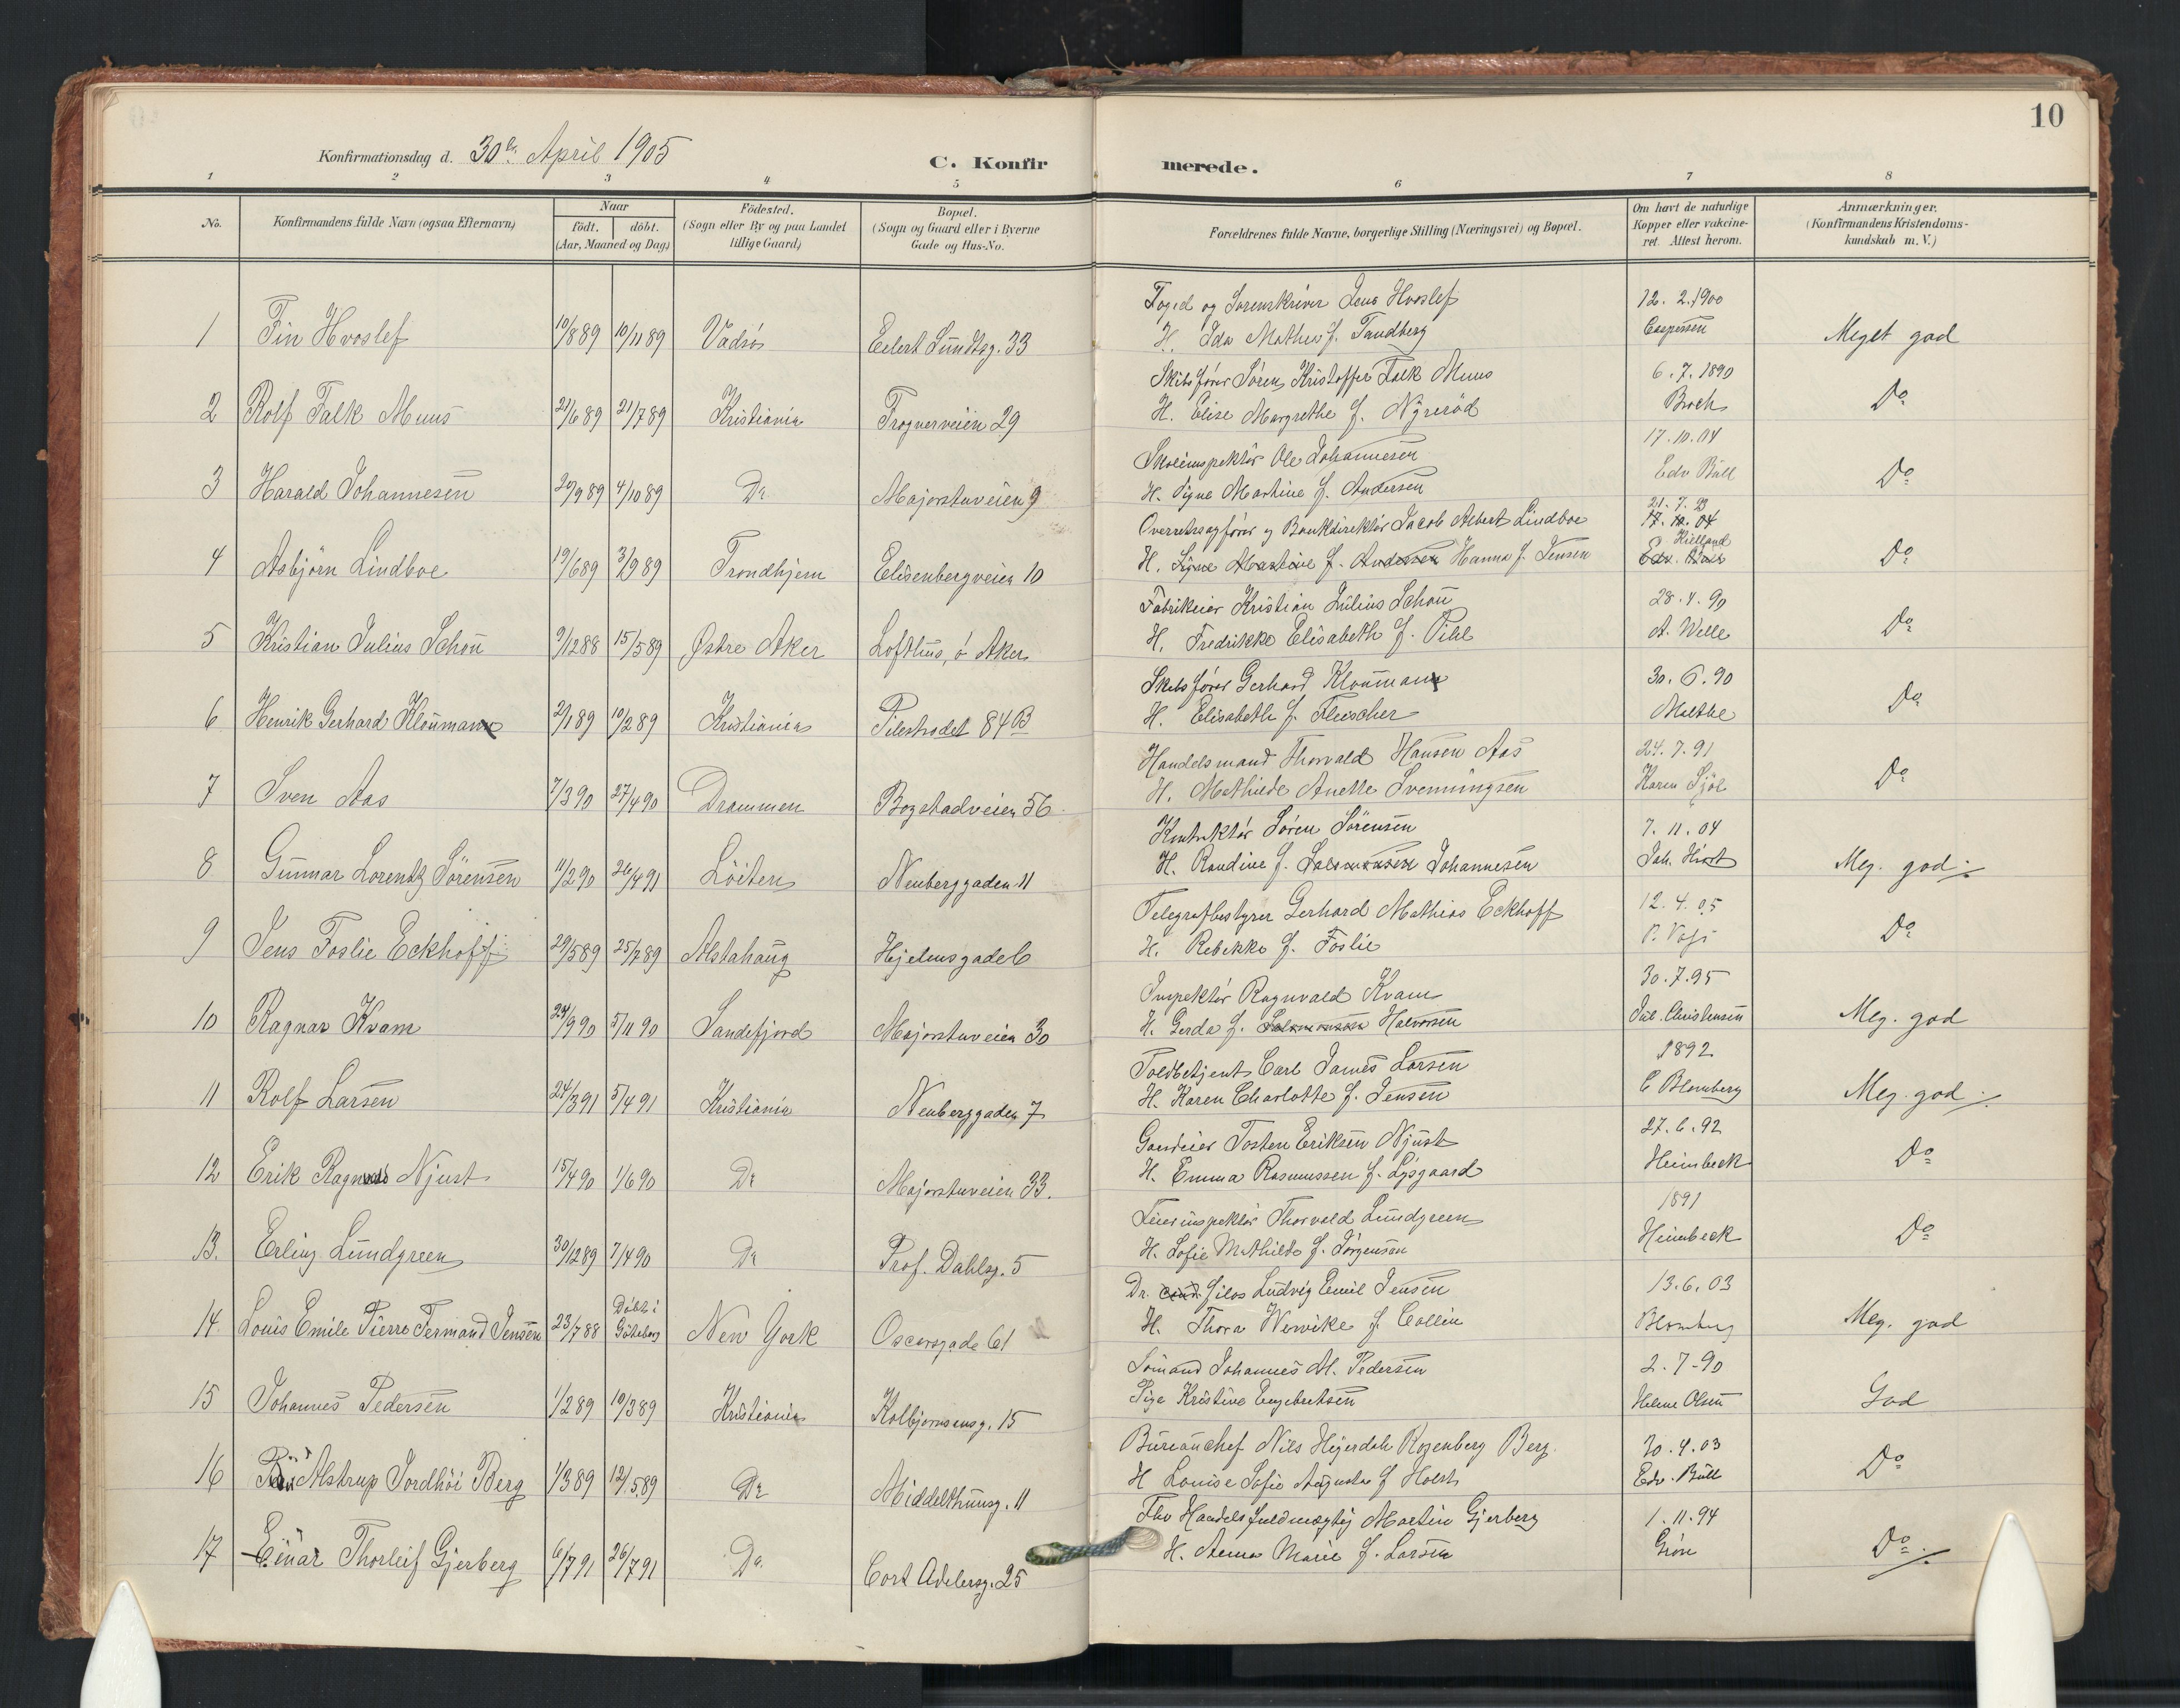 10
Konfirmationsdag d. 30te April 1905
C. Konfirmerede.
1 2 3 4 5 6 7 8
No. Konfirmandens fulde Navn (ogsaa Efternavn) Naar födt. döbt. (Aar, Maaned og Dag) Födested. (Sogn eller By og paa Landet tillige Gaard) Bopæl. (Sogn og Gaard eller i Byerne Gade og Hus-No. Forældrenes fulde Navne, borgerlige Stilling (Næringsvei) og Bopæl. Om havt de naturlige Kopper eller vakcineret. Attest herom. Anmærkninger. (Konfirmandens Kristendomskundskab m. V.)
Foged og Sorenskriver Jens Hvoslef 12. 2. 1900
1 Fin Hvoslef 10/8 89 10/11 89 Vadsö Eilert Sundtsg. 33 H. Ida Mathea f. Tandberg Caspersen Meget god
Skibsförer Sören Kristoffer Falk Muus 6. 7. 1890
2 Rolf Falk Muus 21/6 89 21/7 89 Kristiania Frognerveien 29 H. Elise Margrethe f. Nyreröd Broch Do
Skoleinspektör Ole Johannesen 17. 10. 04
3 Harald Johannesen 20/9 89 4/10 89 Do Majorstuveien 9 H. Signe Martine f. Andersen Edv Bull Do
Overretssagförer og Bankdirektör Jacob Albert Lindboe 21. 7. 93 17. 10. 04
4 Asbjörn Lindboe 19/6 89 3/9 89 Trondhjem Elisenbergveien 10 H. Signe Martine f. Andersen Hanna f. Jensen Kielland Edv. Bull Do
Fabrikeier Kristian Julius Schou 28. 4. 90
5 Kristian Julius Schou 9/12 88 15/5 89 Østre Aker Lofthus, ö Aker H. Fredrikke Elisabeth f. Pihl A. Welle Do
Skibsförer Gerhard Kloumann 30. 6. 90
6 Henrik Gerhard Kloumann 2/1 89 10/2 89 Kristiania Pilestrædet 84 B H. Elisabeth f. Fleischer Malthe Do
Handelsmand Thorvald Hansen Aas 24. 7. 91
7 Sven Aas 7/3 90 27/4 90 Drammen Bogstadveien 56 H. Mathilde Anette f. Svenningsen Karen Do
Kontraktör Sören Sörensen 7. 11. 04
8 Gunnar Lorentz Sörensen 11/2 90 26/4 91 Löiten Neuberggaden 11 H. Randine f. Salomonsen Johannesen Joh. Hiort Meg. god
Telegrafbestyrer Gerhard Mathias Eckhoff 12. 4. 05
9 Jens Foslie Eckhoff 29/5 89 25/7 89 Alstahaug Hjelmsgade 6 H. Rebekka f. Foslie P. Vogt Do
Inspektör Ragnvald Kvam 30. 7. 95
10 Ragnar Kvam 24/9 90 5/11 90 Sandefjord Majorstuveien 30 H. Gerda f. Salomonsen Halvorsen Jul. Christensen Meg. god
Toldbetjent Carl James Larsen 1892
11 Rolf Larsen 24/3 91 5/4 91 Kristiania Neuberggaden 7 H. Karen Charlotte f. Jensen C Blomberg Meg. god
Gaardeier Tosten Eriksen Njust 27. 6. 92
12 Erik Ragnvald Njust 15/4 90 1/6 90 Do Majorstuveien 33. H. Emma Rasmussen f. Lysgaard Heimbeck Do
Thorvald Lundgreen 1891
13. Erling Lundgreen 30/12 89 7/4 90 Do Prof. Dahlsg. 5 H. Sofie Mathilde f. Jörgensen Heimbeck Do
Dr. filos Ludvig Emil Jensen 13. 6. 03
14. Louis Emile Pierre Fermand Jensen 23/7 88 Döbt i Göteborg New York Oscarsgade 61 H. Thora Wenvike f. Collin Blomberg Meg. god
Sömand Johannes M. Pedersen 2. 7 - 90
15 Johannes Pedersen 1/2 89 10/3 89 Kristiania Kolbjörnsensg. 15 Pige Kristine Engebretsen Helene Olsen God
Büreauchef Nils Heyerdahl Rozenberg Berg. 30. 4. 03
16 Alstrup Jordhöi Berg 1/3 89 12/5 89 Do Middelthunsg. 11 H Louise Sofie Augusta f Holst Edv. Bull Do
Fhv Handelsfuldmægtig Martin Gjerberg 1. 11. 94
17 Einar Thorleif Gjerberg 6/7 91 26/7 91 Do Cort Adelersg. 25 H. Anna Marie f. Larsen Grön Do